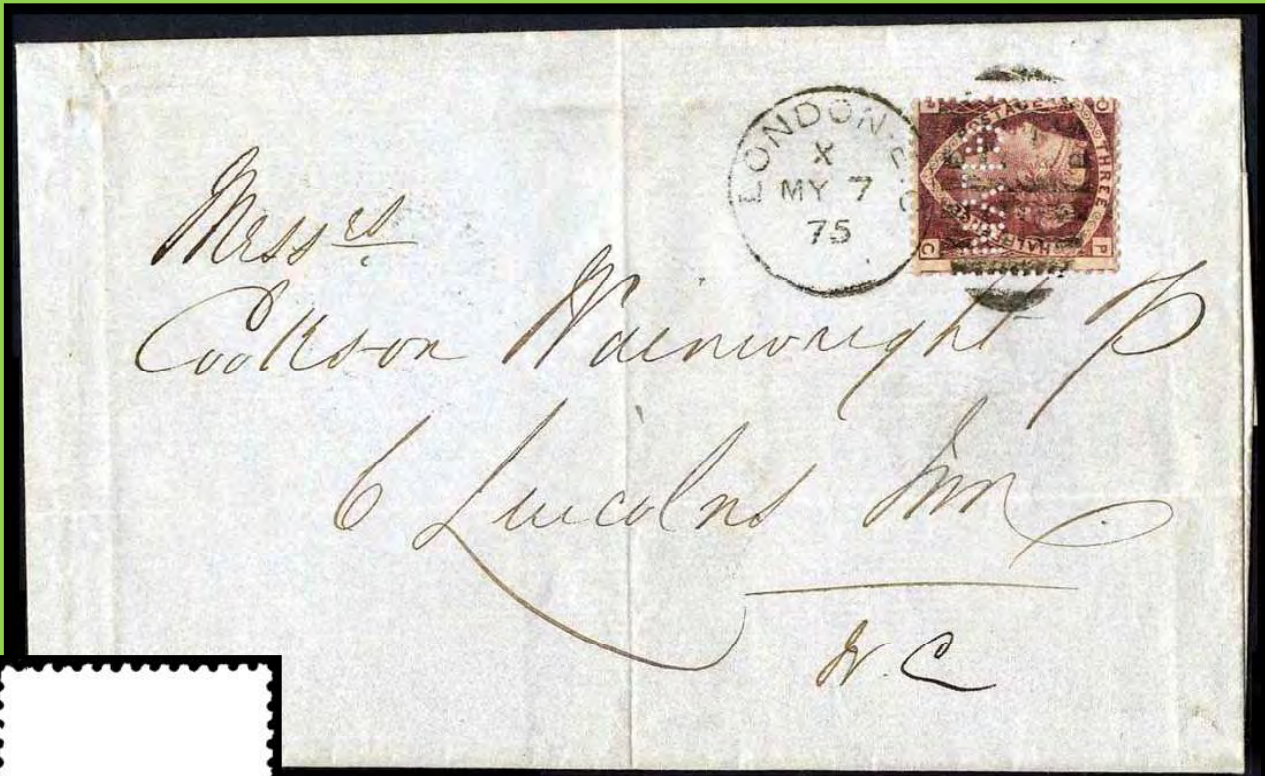 LONDON·E·C
X
MY 7
75
POSTAGE
THREE
HALF
C
P
Mess^rs
Cookson Wainwright
6 Lincolns Inn
W.C